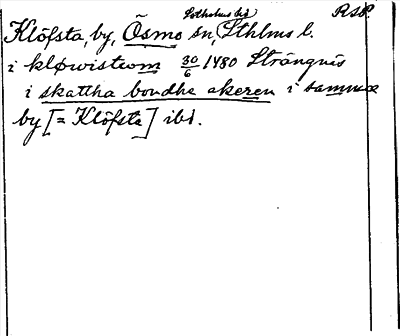 Sotholms hd RSP.
Klöfsta, by, Ösmo sn, Sthlms l.
i kløwistom 30/6 1480 Strängnäs
i skattha bondhe akeren i samma
by [= Klöfsta] ibd.